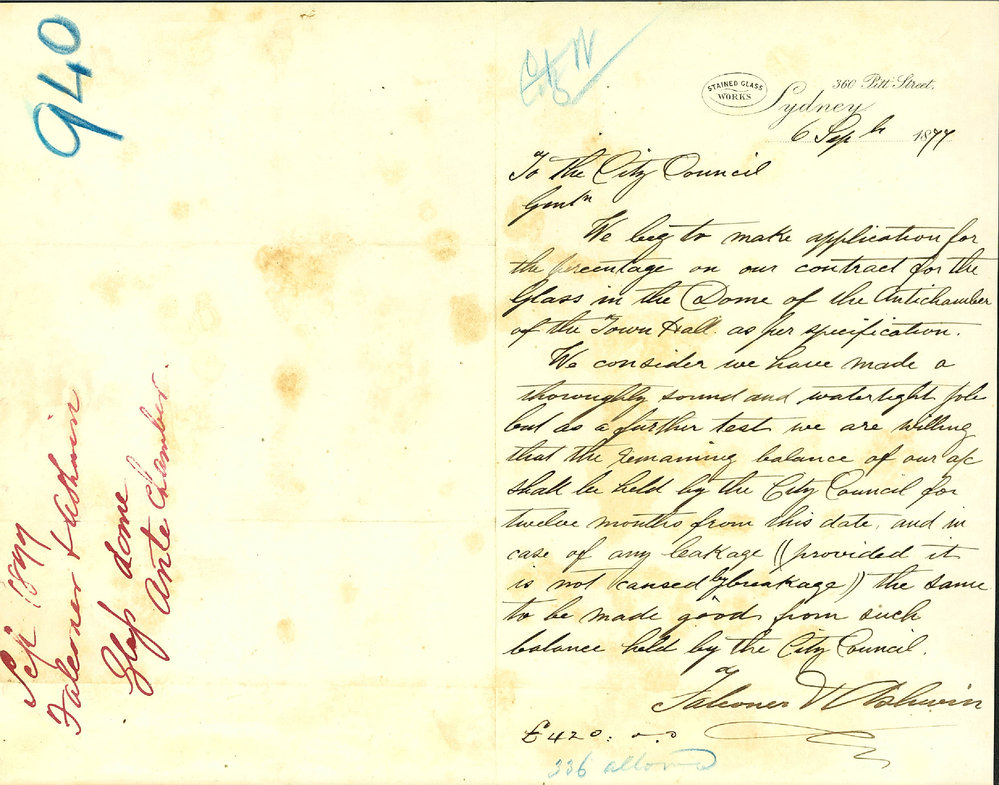 940
Sep 1877
Falconer & Ashwin
Glass dome
Ante Chamber.
STAINED GLASS
WORKS
360 Pitt Street,
Sydney
6 Sep 1877
To the City Council
Gentn
We beg to make application for
the percentage on our contract for the
Glass in the Dome of the Antichamber
of the Town Hall. as per specification.
We consider we have made a
thoroughly sound and watertight job
but as a further test we are willing
that the remaining balance of our a/c
shall be held by the City Council for
twelve months from this date, and in
case of any leakage ((provided it
is not caused by breakage)) the same
to be made good from such
balance held by the City Council.
Falconer & Ashwin
£420. 0. 0
336 allowed